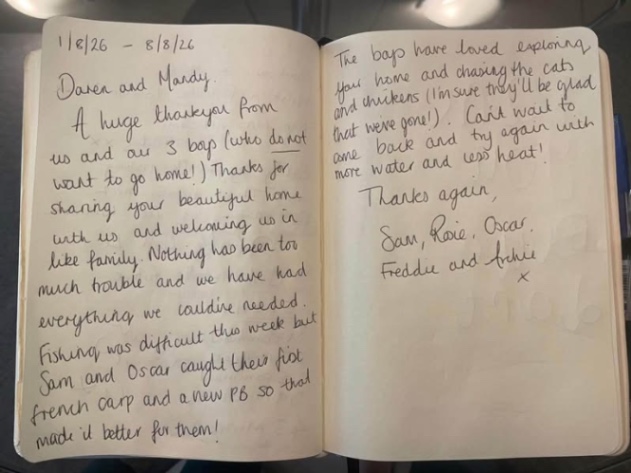 1/8/26 - 8/8/26
Daren and Mandy.
A huge thankyou from
us and our 3 boys (who do not
want to go home!) Thanks for
sharing your beautiful home
with us and welcoming us in
like family. Nothing has been too
much trouble and we have had
everything we couldive needed.
Fishing was difficult this week but
Sam and Oscar caught their first
french carp and a new PB so that
made it better for them!
The boys have loved exploring
your home and chasing the cats
and chickens (I'm sure they'll be glad
that we've gone!). Can't wait to
come back and try again with
more water and less heat!
Thanks again,
Sam, Rosie, Oscar,
Freddie and Archie
x